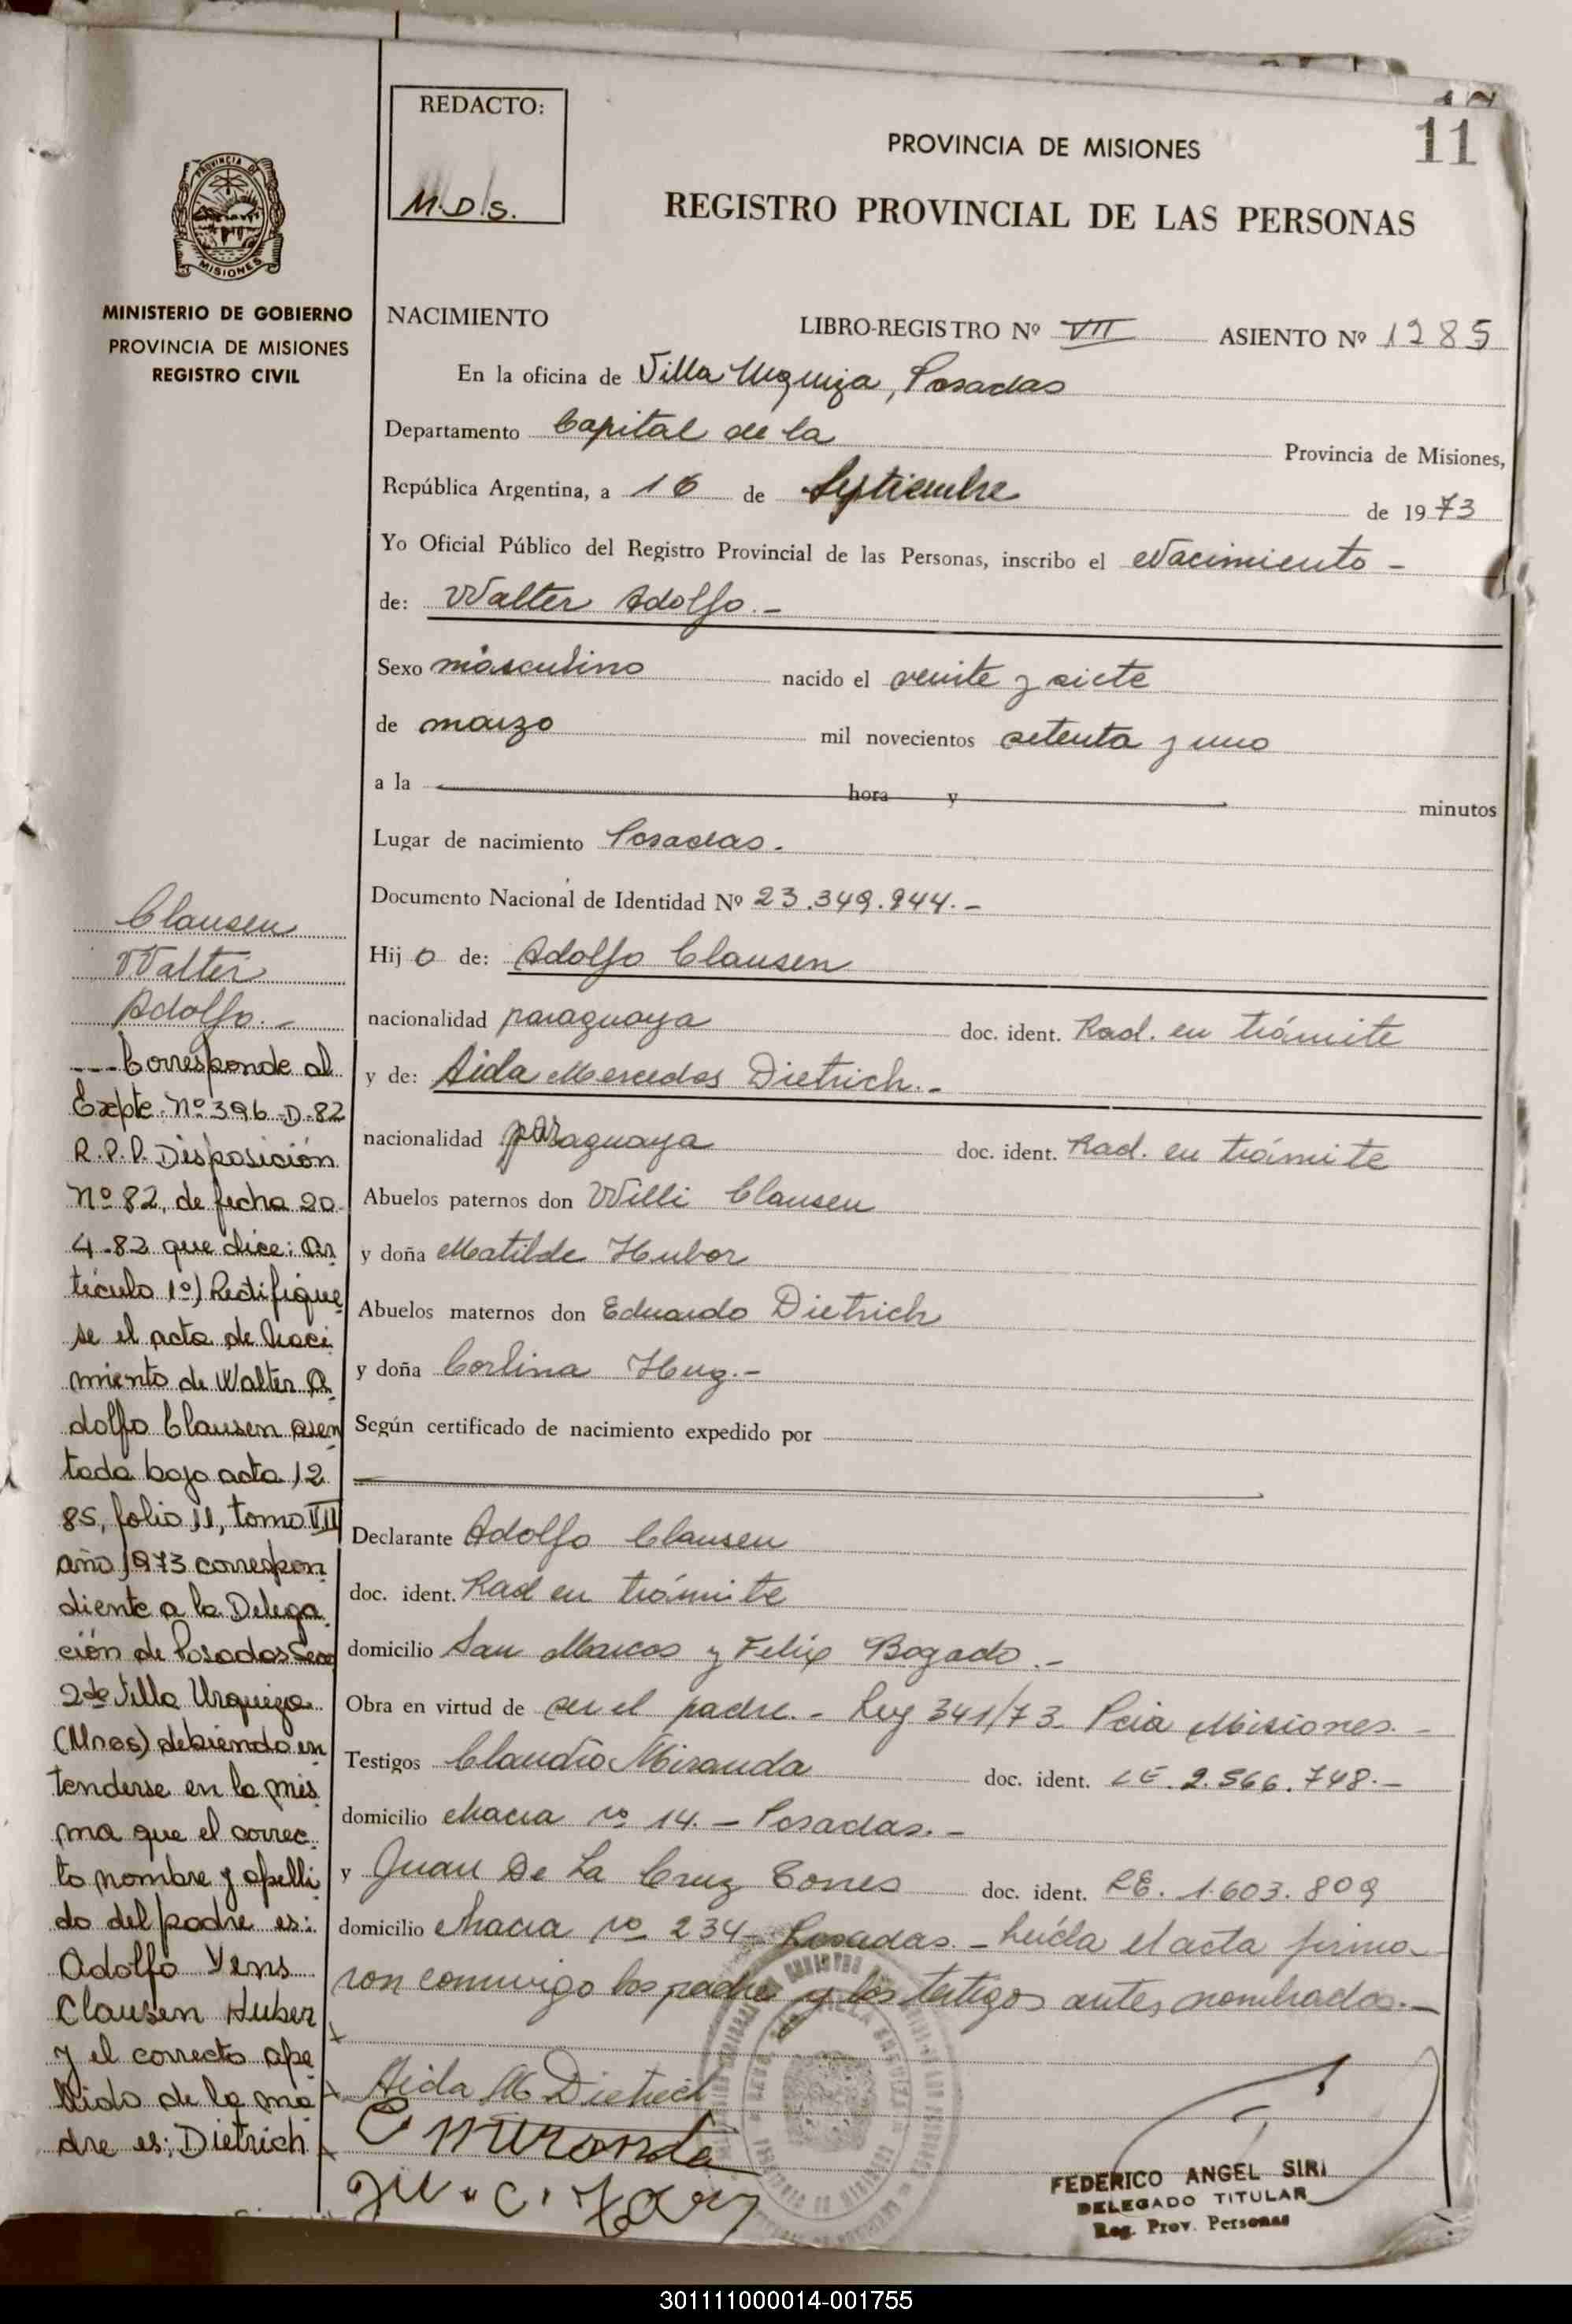 REDACTO:
M.D.S.
11
PROVINCIA DE MISIONES
REGISTRO PROVINCIAL DE LAS PERSONAS
PROVINCIA DE
MISIONES
MINISTERIO DE GOBIERNO
PROVINCIA DE MISIONES
REGISTRO CIVIL
NACIMIENTO LIBRO-REGISTRO Nº VII ASIENTO Nº 1285
En la oficina de Villa Urquiza, Posadas
Departamento Capital de la Provincia de Misiones,
República Argentina, a 16 de Septiembre de 1973
Yo Oficial Público del Registro Provincial de las Personas, inscribo el Nacimiento -
de: Walter Adolfo.-
Sexo masculino nacido el veinte y siete
de marzo mil novecientos setenta y uno
a la hora y minutos
Lugar de nacimiento Posadas.
Documento Nacional de Identidad Nº 23.349.944.-
Hijo de: Adolfo Clausen
nacionalidad paraguaya doc. ident. Rad. en trámite
y de: Aida Mercedes Dietrich.-
nacionalidad paraguaya doc. ident. Rad. en trámite
Abuelos paternos don Willi Clausen
y doña Matilde Hubor
Abuelos maternos don Eduardo Dietrich
y doña Corlina Hug.-
Según certificado de nacimiento expedido por
Declarante Adolfo Clausen
doc. ident. Rad en trámite
domicilio San Marcos y Felix Bogado.-
Obra en virtud de ser el padre.- Ley 341/73. Pcia Misiones.-
Testigos Claudio Miranda doc. ident. LE. 2.566.748.-
domicilio chacra nº 14.- Posadas.-
y Juan De La Cruz Torres doc. ident. LE. 1.603.809
domicilio chacra nº 234- Posadas.- Leída el acta firma-
ron conmigo los padres y los testigos antes nombrados.-
Aida M Dietrich
C Miranda
FEDERICO ANGEL SIRI
DELEGADO TITULAR
Reg. Prov. Personas
Clausen
Walter
Adolfo.-
---Corresponde al
Expte. Nº 396-D-82
R.P.P. Disposición
Nº 82, de fecha 20-
4-82 que dice: Ar
tículo 1º) Rectifíque
se el acta de Naci
miento de Walter A
dolfo Clausen asen
tada bajo acta 12
85, folio 11, tomo VII
año 1973 correspon
diente a la Delega
ción de Posadas Secc
2da Villa Urquiza
(Mnes) debiendo en
tenderse en la mis
ma que el correc
to nombre y apelli
do del padre es:
Adolfo Yens
Clausen Huber
y el correcto ape
llido de la ma
dre es: Dietrich
301111000014-001755